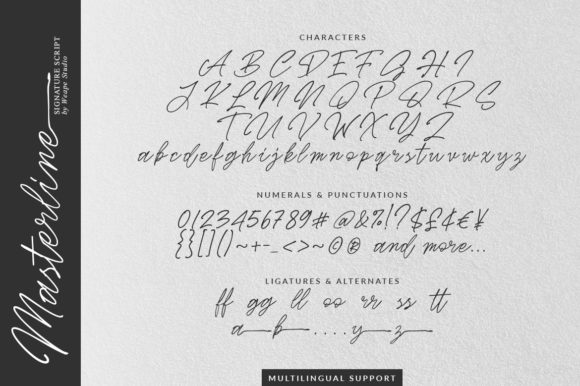 Masterline
SIGNATURE SCRIPT
by Weape Studio
CHARACTERS
A B C D E F G H I
J K L M N O P Q R S
T U V W X Y Z
a b c d e f g h i j k l m n o p q r s t u v w x y z
NUMERALS & PUNCTUATIONS
0123456789# @&%!?$£¢€¥
{}[]()~+-_<>©® and more...
LIGATURES & ALTERNATES
ff gg ll oo rr ss tt
a b ....y z
MULTILINGUAL SUPPORT